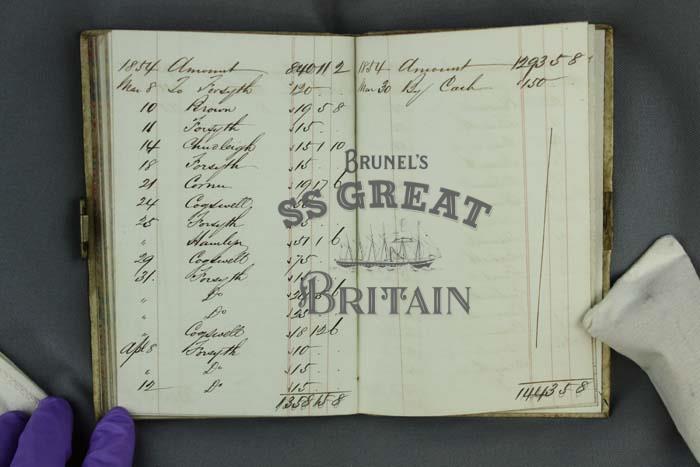 1854 Amount 840 11 2
Mar 8 To Forsyth 120
10 Brown 19 5 8
11 Forsyth 15
14 Chudleigh 15 1 10
18 Forsyth 15
21 Cornu 19 17 6
24 Cogswell
25 Forsyth
" Hamlyn 51 1 6
29 Cogswell 75
31 Forsyth 15
" Do
" Do 25
" Cogswell 18 12 6
Apl 8 Forsyth 10
" Do 15
12 Do 15
1358 15 8
1854 Amount 1293 5 8
Mar 30 By Cash 150
1443 5 8
BRUNEL'S
SS GREAT
BRITAIN